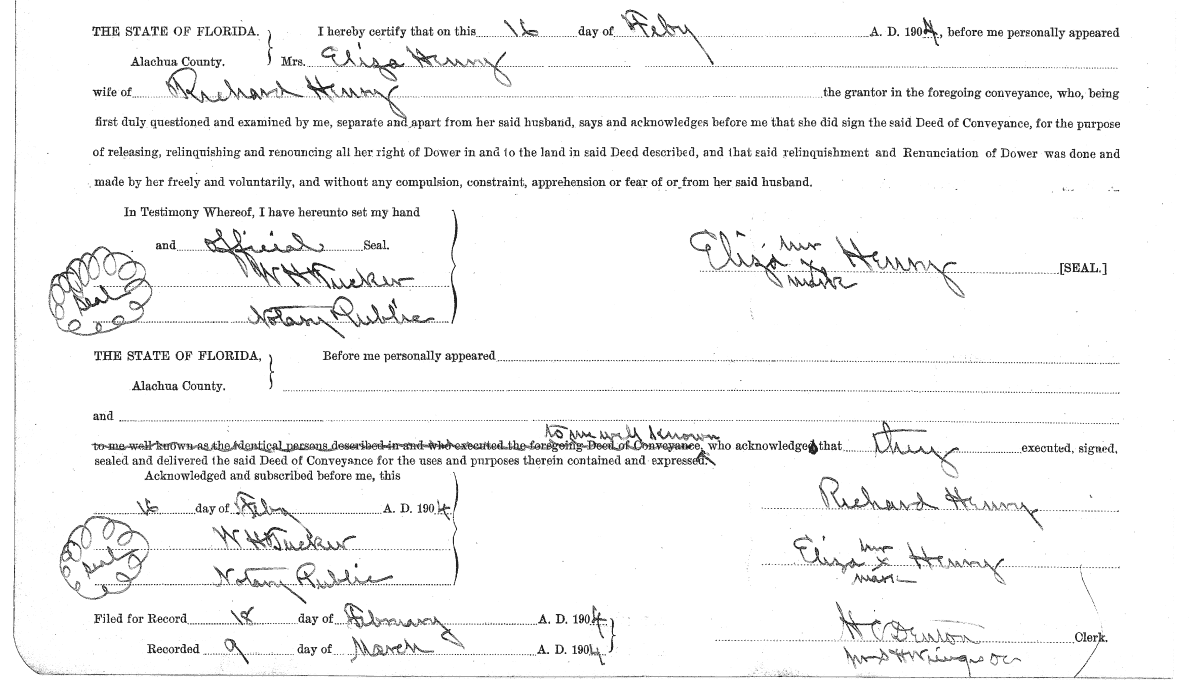 THE STATE OF FLORIDA. I hereby certify that on this 16 day of Feby A. D. 1904, before me personally appeared
Alachua County. Mrs. Eliza Henry
wife of Richard Henry the grantor in the foregoing conveyance, who, being
first duly questioned and examined by me, separate and apart from her said husband, says and acknowledges before me that she did sign the said Deed of Conveyance, for the purpose
of releasing, relinquishing and renouncing all her right of Dower in and to the land in said Deed described, and that said relinquishment and Renunciation of Dower was done and
made by her freely and voluntarily, and without any compulsion, constraint, apprehension or fear of or from her said husband.
In Testimony Whereof, I have hereunto set my hand
and official Seal.
her
Eliza x Henry [SEAL.]
mark
W H Tucker
Seal
Notary Public
THE STATE OF FLORIDA, Before me personally appeared
Alachua County.
and
to me well known
to me well known as the identical persons described in and who executed the foregoing Deed of Conveyance, who acknowledged that they executed, signed,
sealed and delivered the said Deed of Conveyance for the uses and purposes therein contained and expressed.
Acknowledged and subscribed before me, this
16 day of Feby A. D. 1904
Richard Henry
W H Tucker
Seal
her
Eliza x Henry
mark
Notary Public
Filed for Record 18 day of February A. D. 1904
H C Denton Clerk.
Recorded 9 day of March A. D. 1904